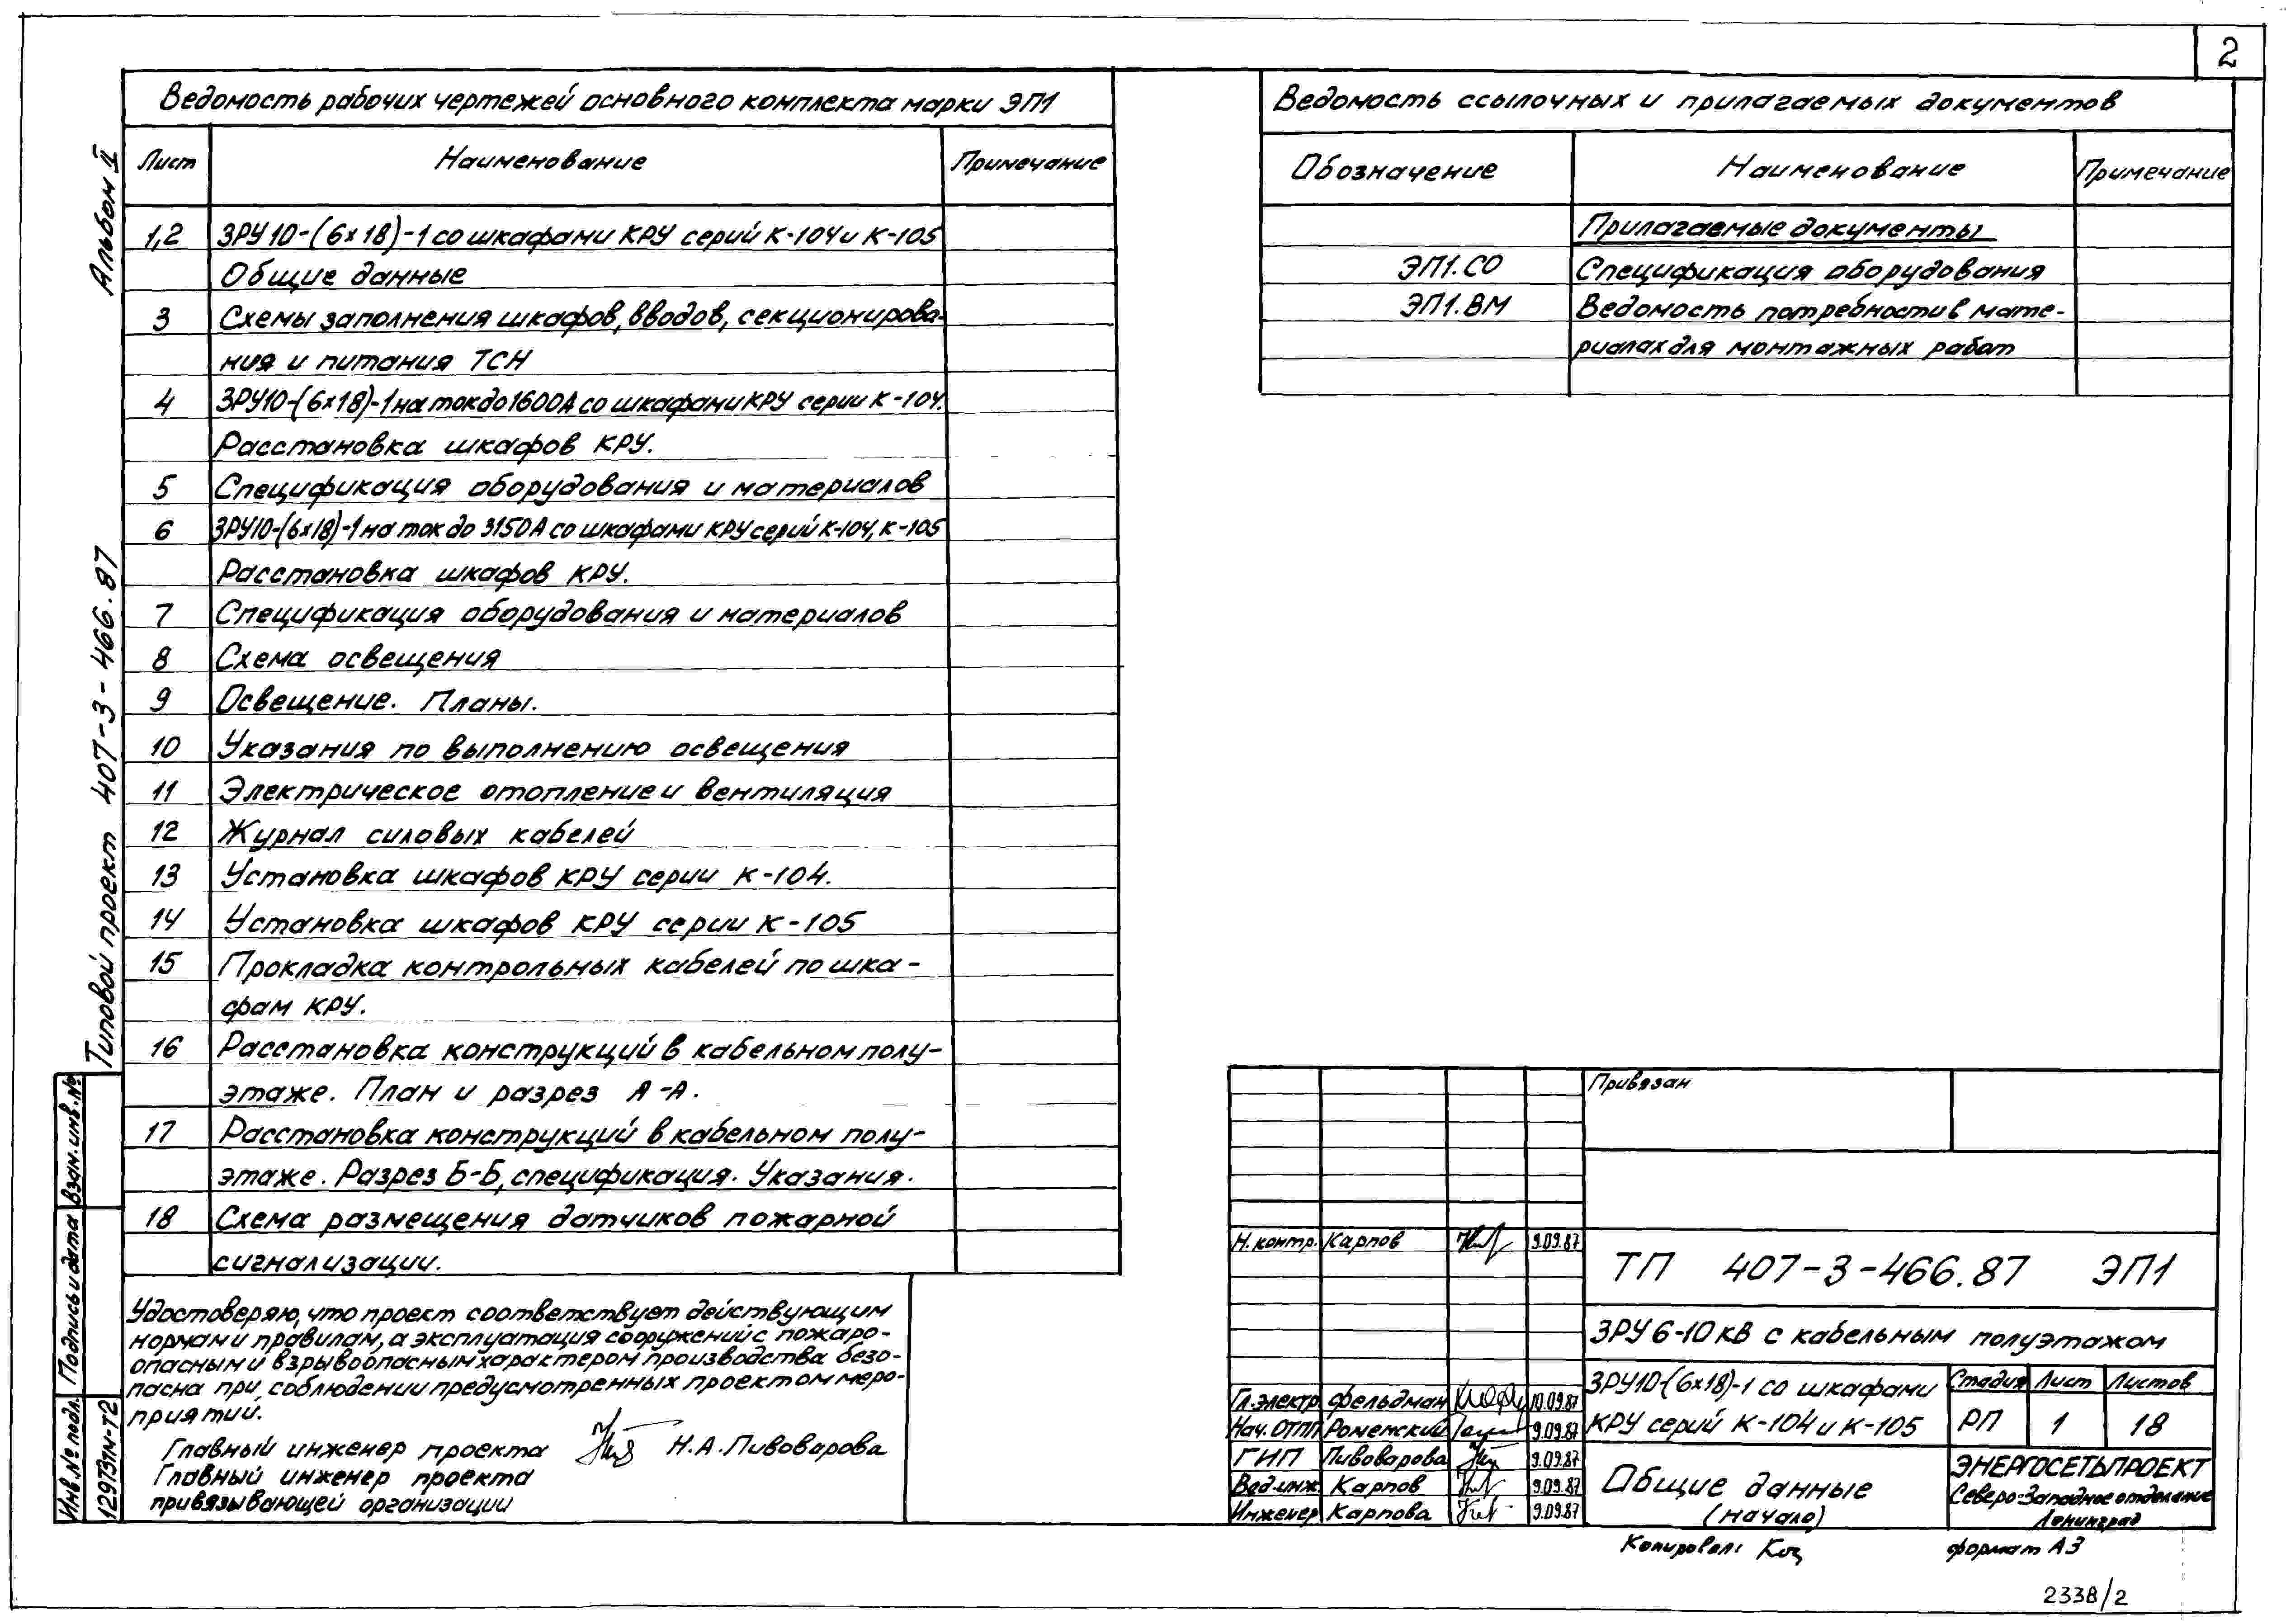 2
Альбом II
Типовой проект 407-3-466.87
Ведомость рабочих чертежей основного комплекта марки ЭП1
Лист Наименование Примечание
1,2 ЗРУ10-(6х18)-1 со шкафами КРУ серий К-104 и К-105
Общие данные
3 Схемы заполнения шкафов, вводов, секционирова-
ния и питания ТСН
4 ЗРУ10-(6х18)-1 на ток до 1600А со шкафами КРУ серии К-104.
Расстановка шкафов КРУ.
5 Спецификация оборудования и материалов
6 ЗРУ10-(6х18)-1 на ток до 3150А со шкафами КРУ серий К-104, К-105
Расстановка шкафов КРУ.
7 Спецификация оборудования и материалов
8 Схема освещения
9 Освещение. Планы.
10 Указания по выполнению освещения
11 Электрическое отопление и вентиляция
12 Журнал силовых кабелей
13 Установка шкафов КРУ серии К-104.
14 Установка шкафов КРУ серии К-105
15 Прокладка контрольных кабелей по шка-
фам КРУ.
16 Расстановка конструкций в кабельном полу-
этаже. План и разрез А-А.
17 Расстановка конструкций в кабельном полу-
этаже. Разрез Б-Б, спецификация. Указания.
18 Схема размещения датчиков пожарной
сигнализации.
Удостоверяю, что проект соответствует действующим
нормам и правилам, а эксплуатация сооружений с пожаро-
опасным и взрывоопасным характером производства безо-
пасна при соблюдении предусмотренных проектом меро-
приятий.
Главный инженер проекта Н.А. Пивоварова
Главный инженер проекта
привязывающей организации
Взам. инв. №
Подпись и дата
Инв. № подл.
12973тм-т2
Ведомость ссылочных и прилагаемых документов
Обозначение Наименование Примечание
Прилагаемые документы
ЭП1.СО Спецификация оборудования
ЭП1.ВМ Ведомость потребности в мате-
риалах для монтажных работ
Привязан
Н. контр. Карпов 9.09.87
ТП 407-3-466.87 ЭП1
ЗРУ 6-10 кВ с кабельным полуэтажом
Гл. электр. Фельдман 10.09.87
Нач. ОТП Роменский 9.09.87
ГИП Пивоварова 9.09.87
Вед. инж. Карпов 9.09.87
Инженер Карпова 9.09.87
ЗРУ10-(6х18)-1 со шкафами
КРУ серий К-104 и К-105
Стадия Лист Листов
РП 1 18
Общие данные
(начало)
ЭНЕРГОСЕТЬПРОЕКТ
Северо-Западное отделение
Ленинград
Копировал: формат А3
2338/2